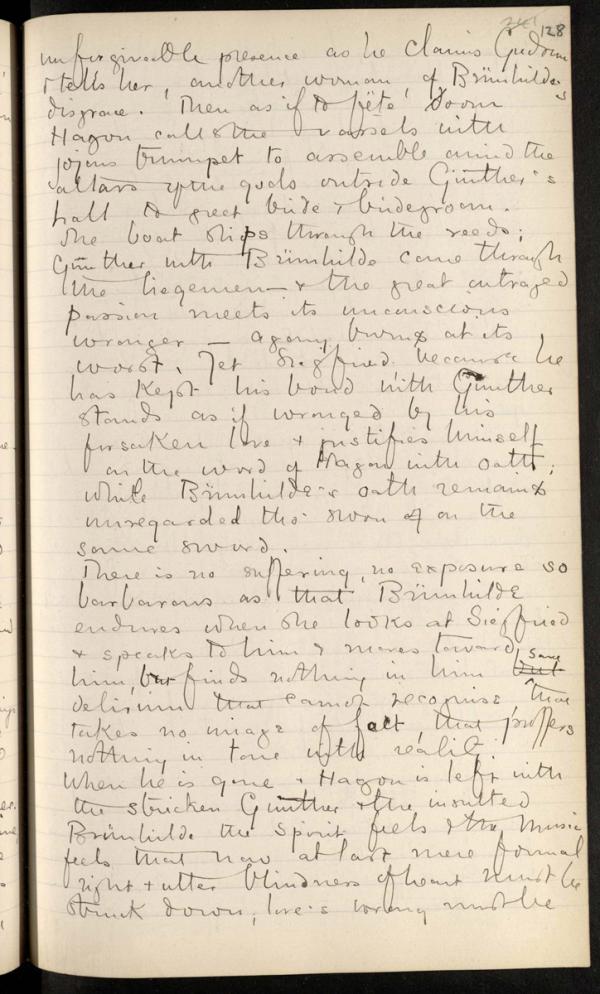 128
unforgiveable presence as he claims Gudrun
& tells her, another woman, of Brünhilde's
disgrace. Then as if to fête doom
Hagon calls the vassals with
joyous trumpet to assemble amid the
altars of the gods outside Günther's
hall to greet bride & bridegroom.
The boat slips through the reeds;
Günther with Brünhilde come through
the liegemen — & the great outraged
passion meets its unconscious
wronger — agony burns at its
worst. Yet Siegfried because he
has kept his bond with Günther
stands as if wronged by his
forsaken love & justifies himself
on the word of Hagon with oath;
while Brünhilde's oath remains
unregarded tho' sworn on the
same sword.
There is no suffering, no exposure so
barbarous as that Brünhilde
endures when she looks at Siegfried
& speaks to him & moves toward
him, but finds nothing in him save
delirium that cannot recognise, that
takes no image of fact, that proffers
nothing in tone with reality.
When he is gone & Hagon is left with
the stricken Günther & the insulted
Brünhilde the spirit feels & the music
feels that now at last mere formal
right & utter blindness of heart must be
struck down, love's wrong must be